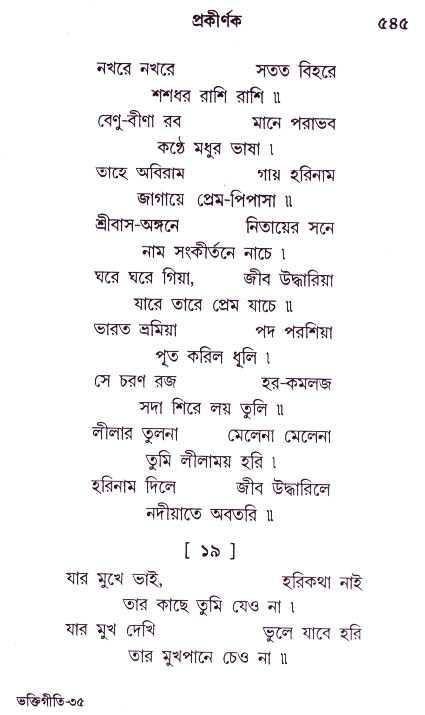 প্রকীর্ণক ৫৪৫
নখরে নখরে সতত বিহরে
শশধর রাশি রাশি ॥
বেণু-বীণা রব মানে পরাভব
কণ্ঠে মধুর ভাষা ।
তাহে অবিরাম গায় হরিনাম
জাগায়ে প্রেম-পিপাসা ॥
শ্রীবাস-অঙ্গনে নিতায়ের সনে
নাম সংকীর্তনে নাচে ।
ঘরে ঘরে গিয়া, জীব উদ্ধারিয়া
যারে তারে প্রেম যাচে ॥
ভারত ভ্রমিয়া পদ পরশিয়া
পূত করিল ধূলি ।
সে চরণ রজ হর-কমলজ
সদা শিরে লয় তুলি ॥
লীলার তুলনা মেলেনা মেলেনা
তুমি লীলাময় হরি ।
হরিনাম দিলে জীব উদ্ধারিলে
নদীয়াতে অবতরি ॥
[ ১৯ ]
যার মুখে ভাই, হরিকথা নাই
তার কাছে তুমি যেও না ।
যার মুখ দেখি ভুলে যাবে হরি
তার মুখপানে চেও না ॥
ভক্তিগীতি-৩৫